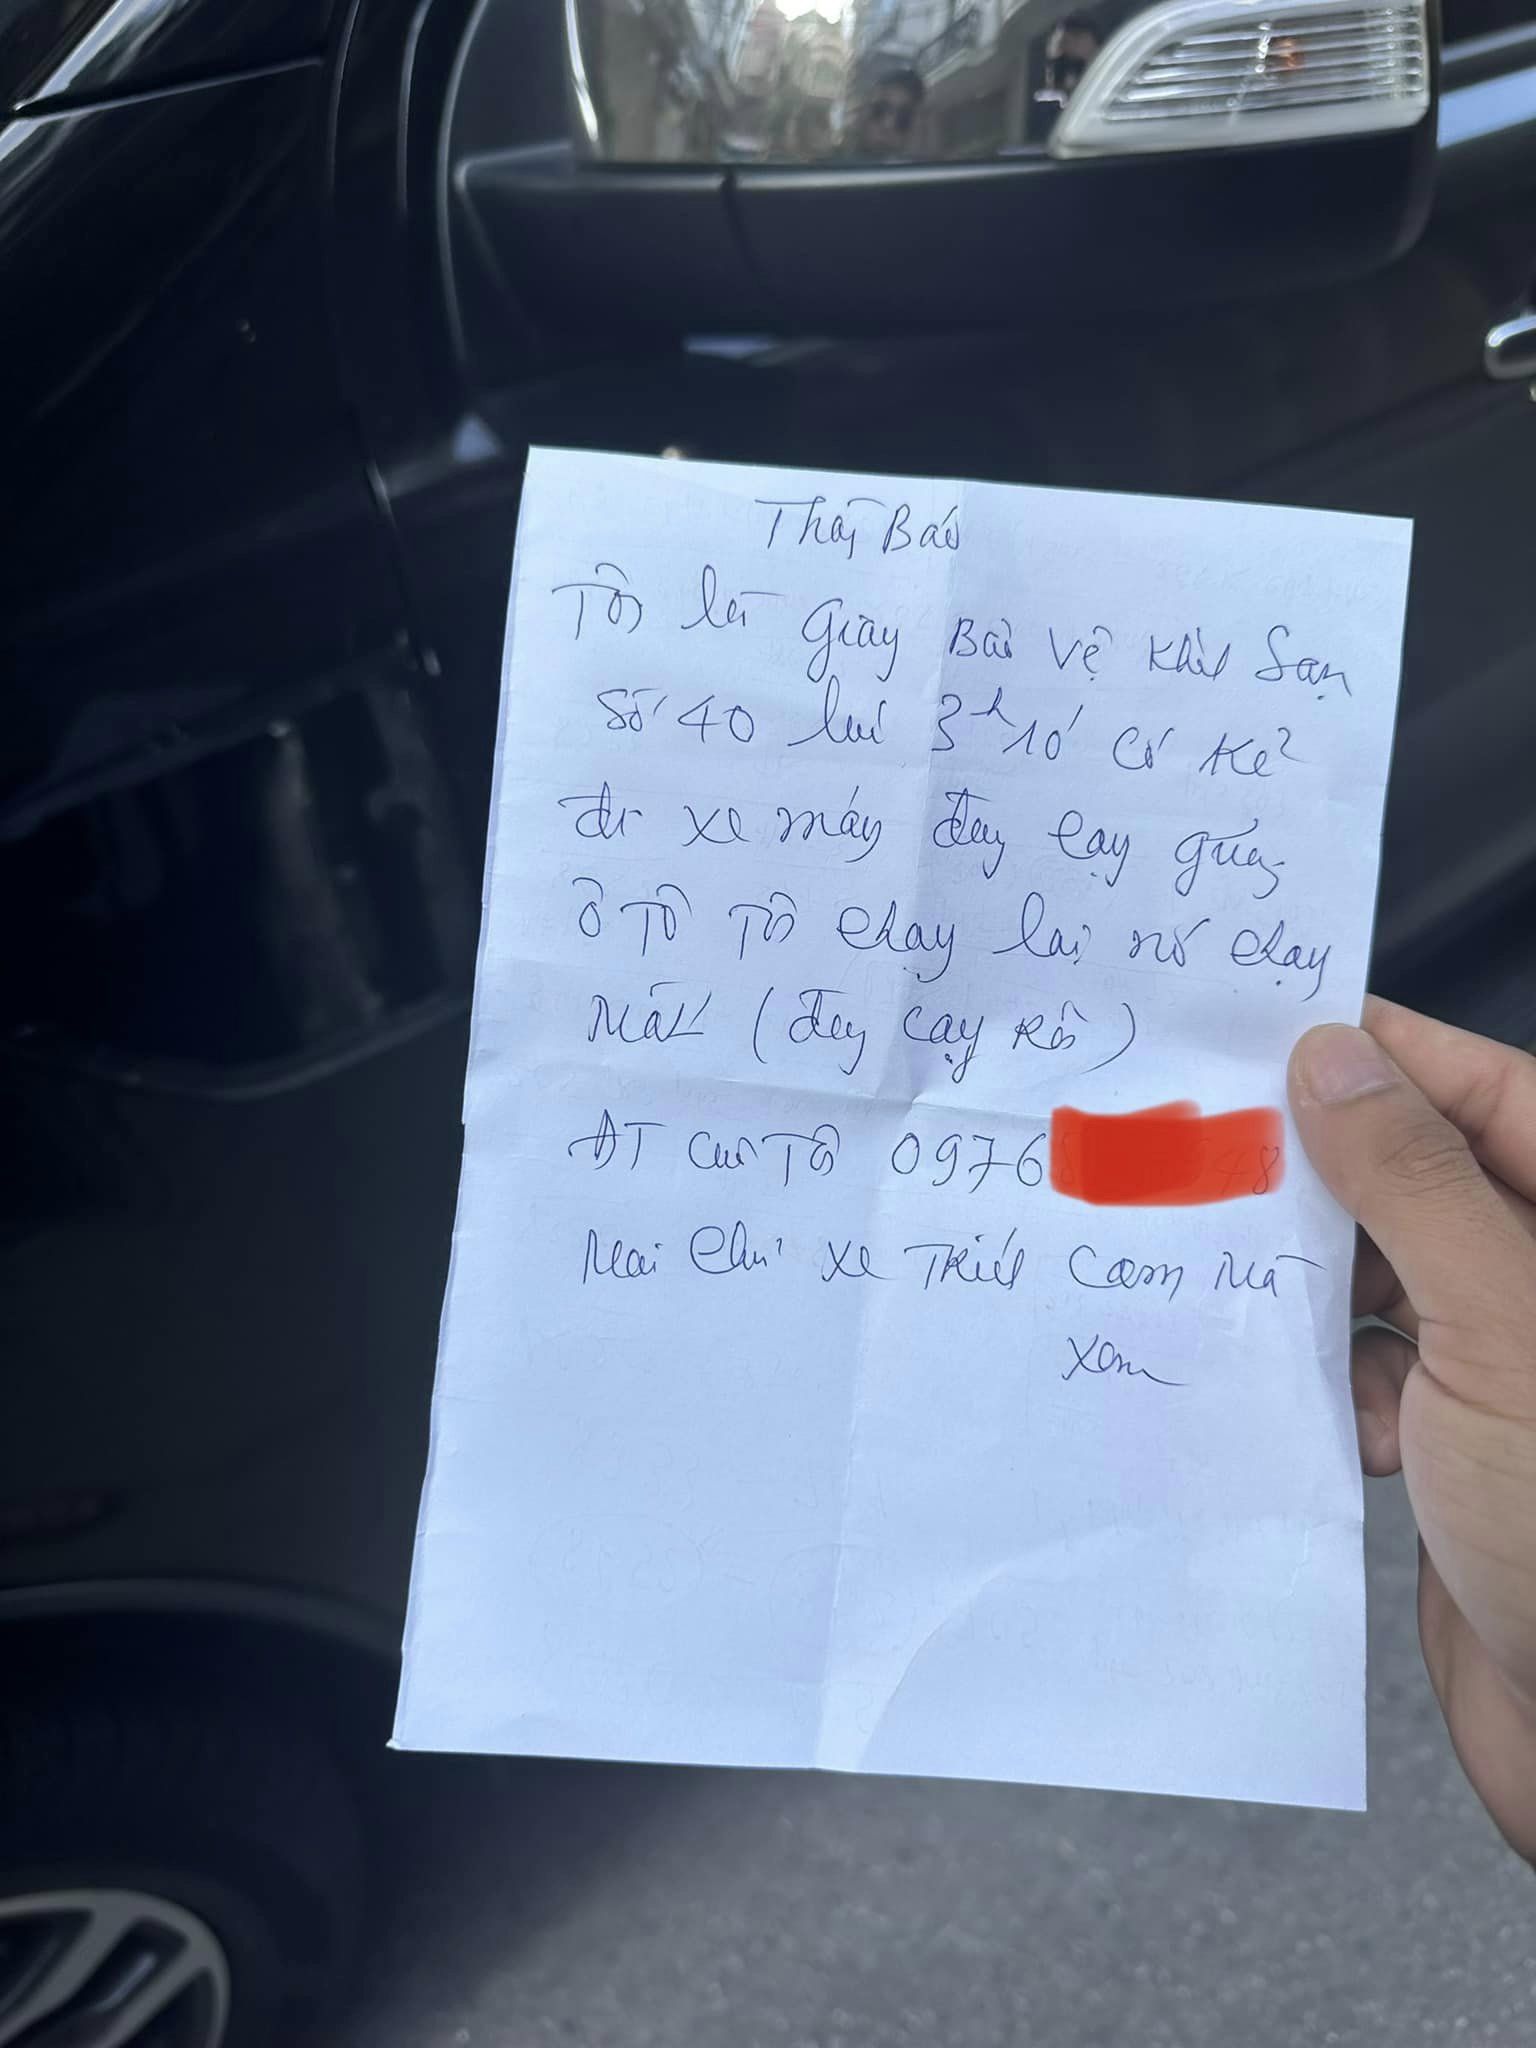 Thôg Báo
Tôi là Giày Bảo vệ Khách Sạn
Số 40 lúc 3h10' Có Kẻ
đi xe máy đang cạy gương
ô Tô Tôi chạy lại nó chạy
Mất (đang cạy Rồi)
ĐT của Tôi 0976
Mai chủ xe Trích Cam Mà
xem